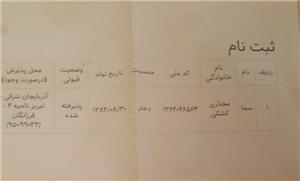 ثبت نام
ردیف نام نام خانوادگی کد ملی جنسیت تاریخ تولد وضعیت قبولی محل پذیرش (درصورت وجود)
۱ سما مختاری کشکی ۱۳۶۴۰۴۶۵۶۳ دختر ۱۳۸۴/۰۸/۳۰ پذیرفته شده آذربایجان شرقی - تبریز ناحیه ۴ - فرزانگان (۹۵۰۹۹۰۳۴)